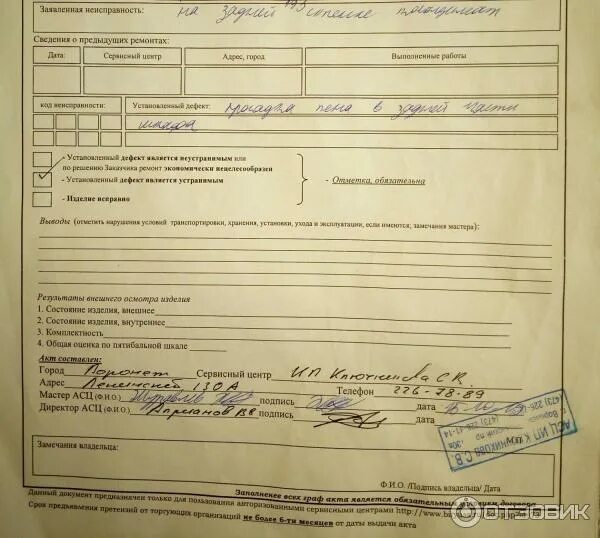 Заявленная неисправность: на задней стенке конденсат
Сведения о предыдущих ремонтах:
Дата: Сервисный центр Адрес, город Выполненные работы
код неисправности: Установленный дефект: просадка пена в задней части
шкафа
- Установленный дефект является неустранимым или
по решению Заказчика ремонт экономически нецелесообразен
- Установленный дефект является устранимым
- Отметка, обязательна
- Изделие исправно
Выводы (отметить нарушения условий транспортировки, хранения, установки, ухода и эксплуатации, если имеются; замечания мастера):
Результаты внешнего осмотра изделия
1. Состояние изделия, внешнее
2. Состояние изделия, внутреннее
3. Комплектность
4. Общая оценка по пятибальной шкале
Акт составлен:
Город Воронеж Сервисный центр ИП Ключникова С.В.
Адрес Ленинский 130А Телефон 226-78-89
Мастер АСЦ (Ф.И.О.) подпись дата
Директор АСЦ (Ф.И.О.) подпись дата
АСЦ ИП КЛЮЧНИКОВА С.В.
Замечания владельца:
Ф.И.О./Подпись владельца/ Дата
Заполнение всех граф акта является обязательным условием договора
Данный документ предназначен только для пользования авторизованными сервисными центрами http://www.
Срок предъявления претензий от торгующих организаций не более 6-ти месяцев от даты выдачи акта
ОТЗОВИК